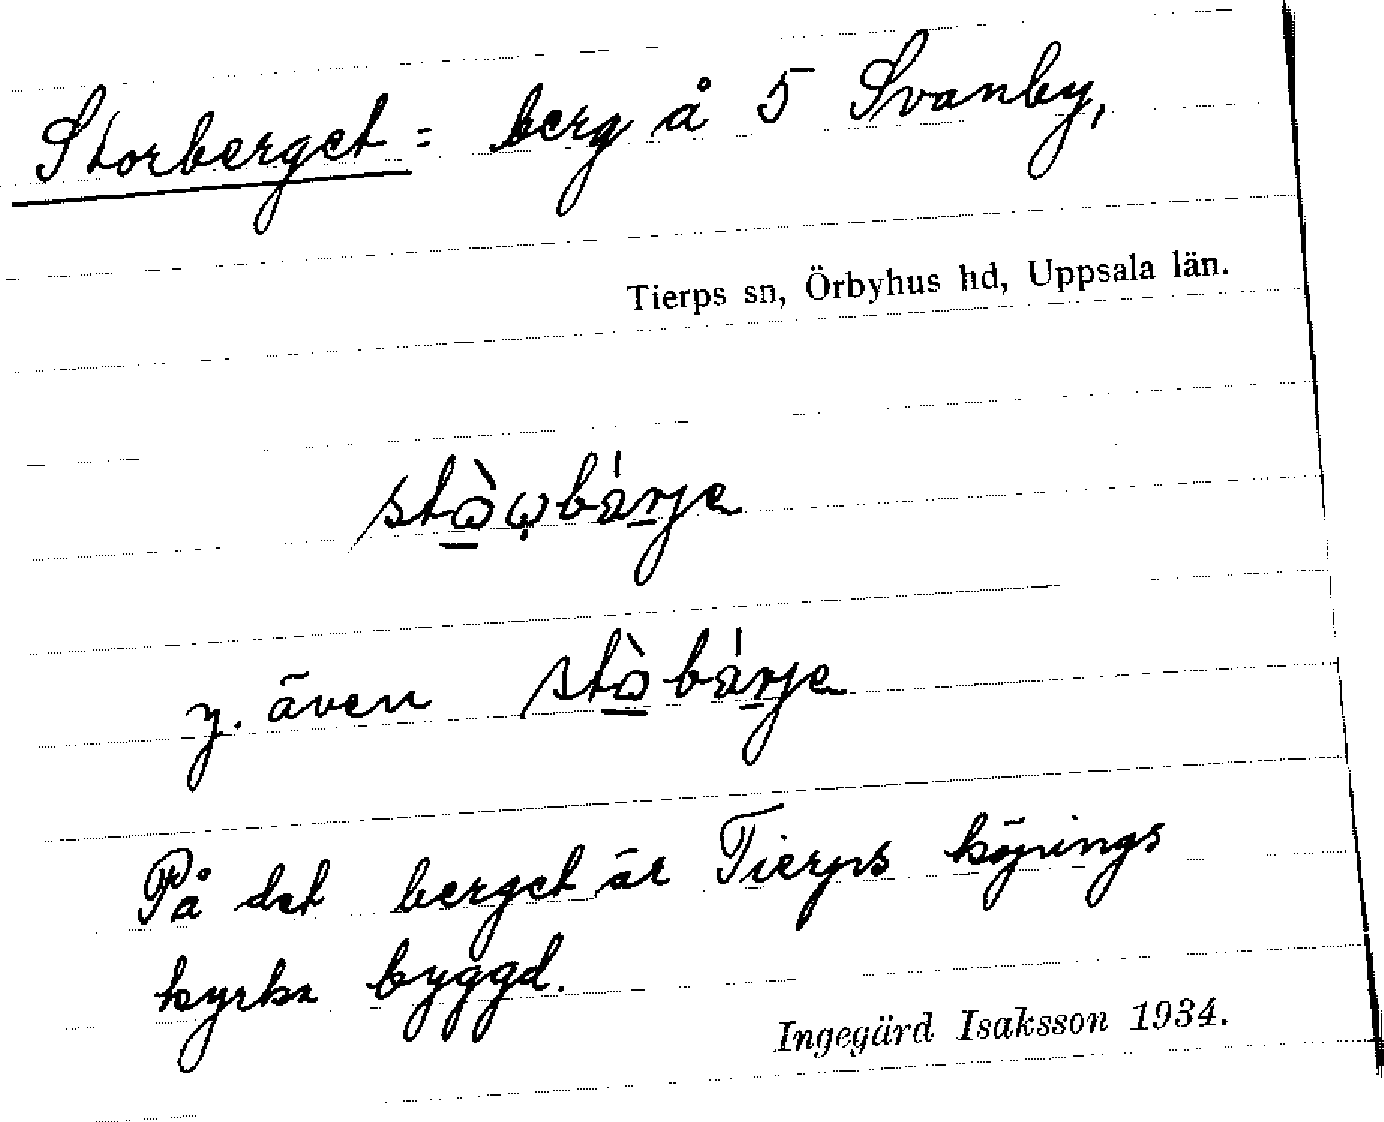 Storberget = berg å 5 Svanby,
Tierps sn, Örbyhus hd, Uppsala län.
y. även
På det berget är Tierps köpings
kyrka byggd.
Ingegärd Isaksson 1934.